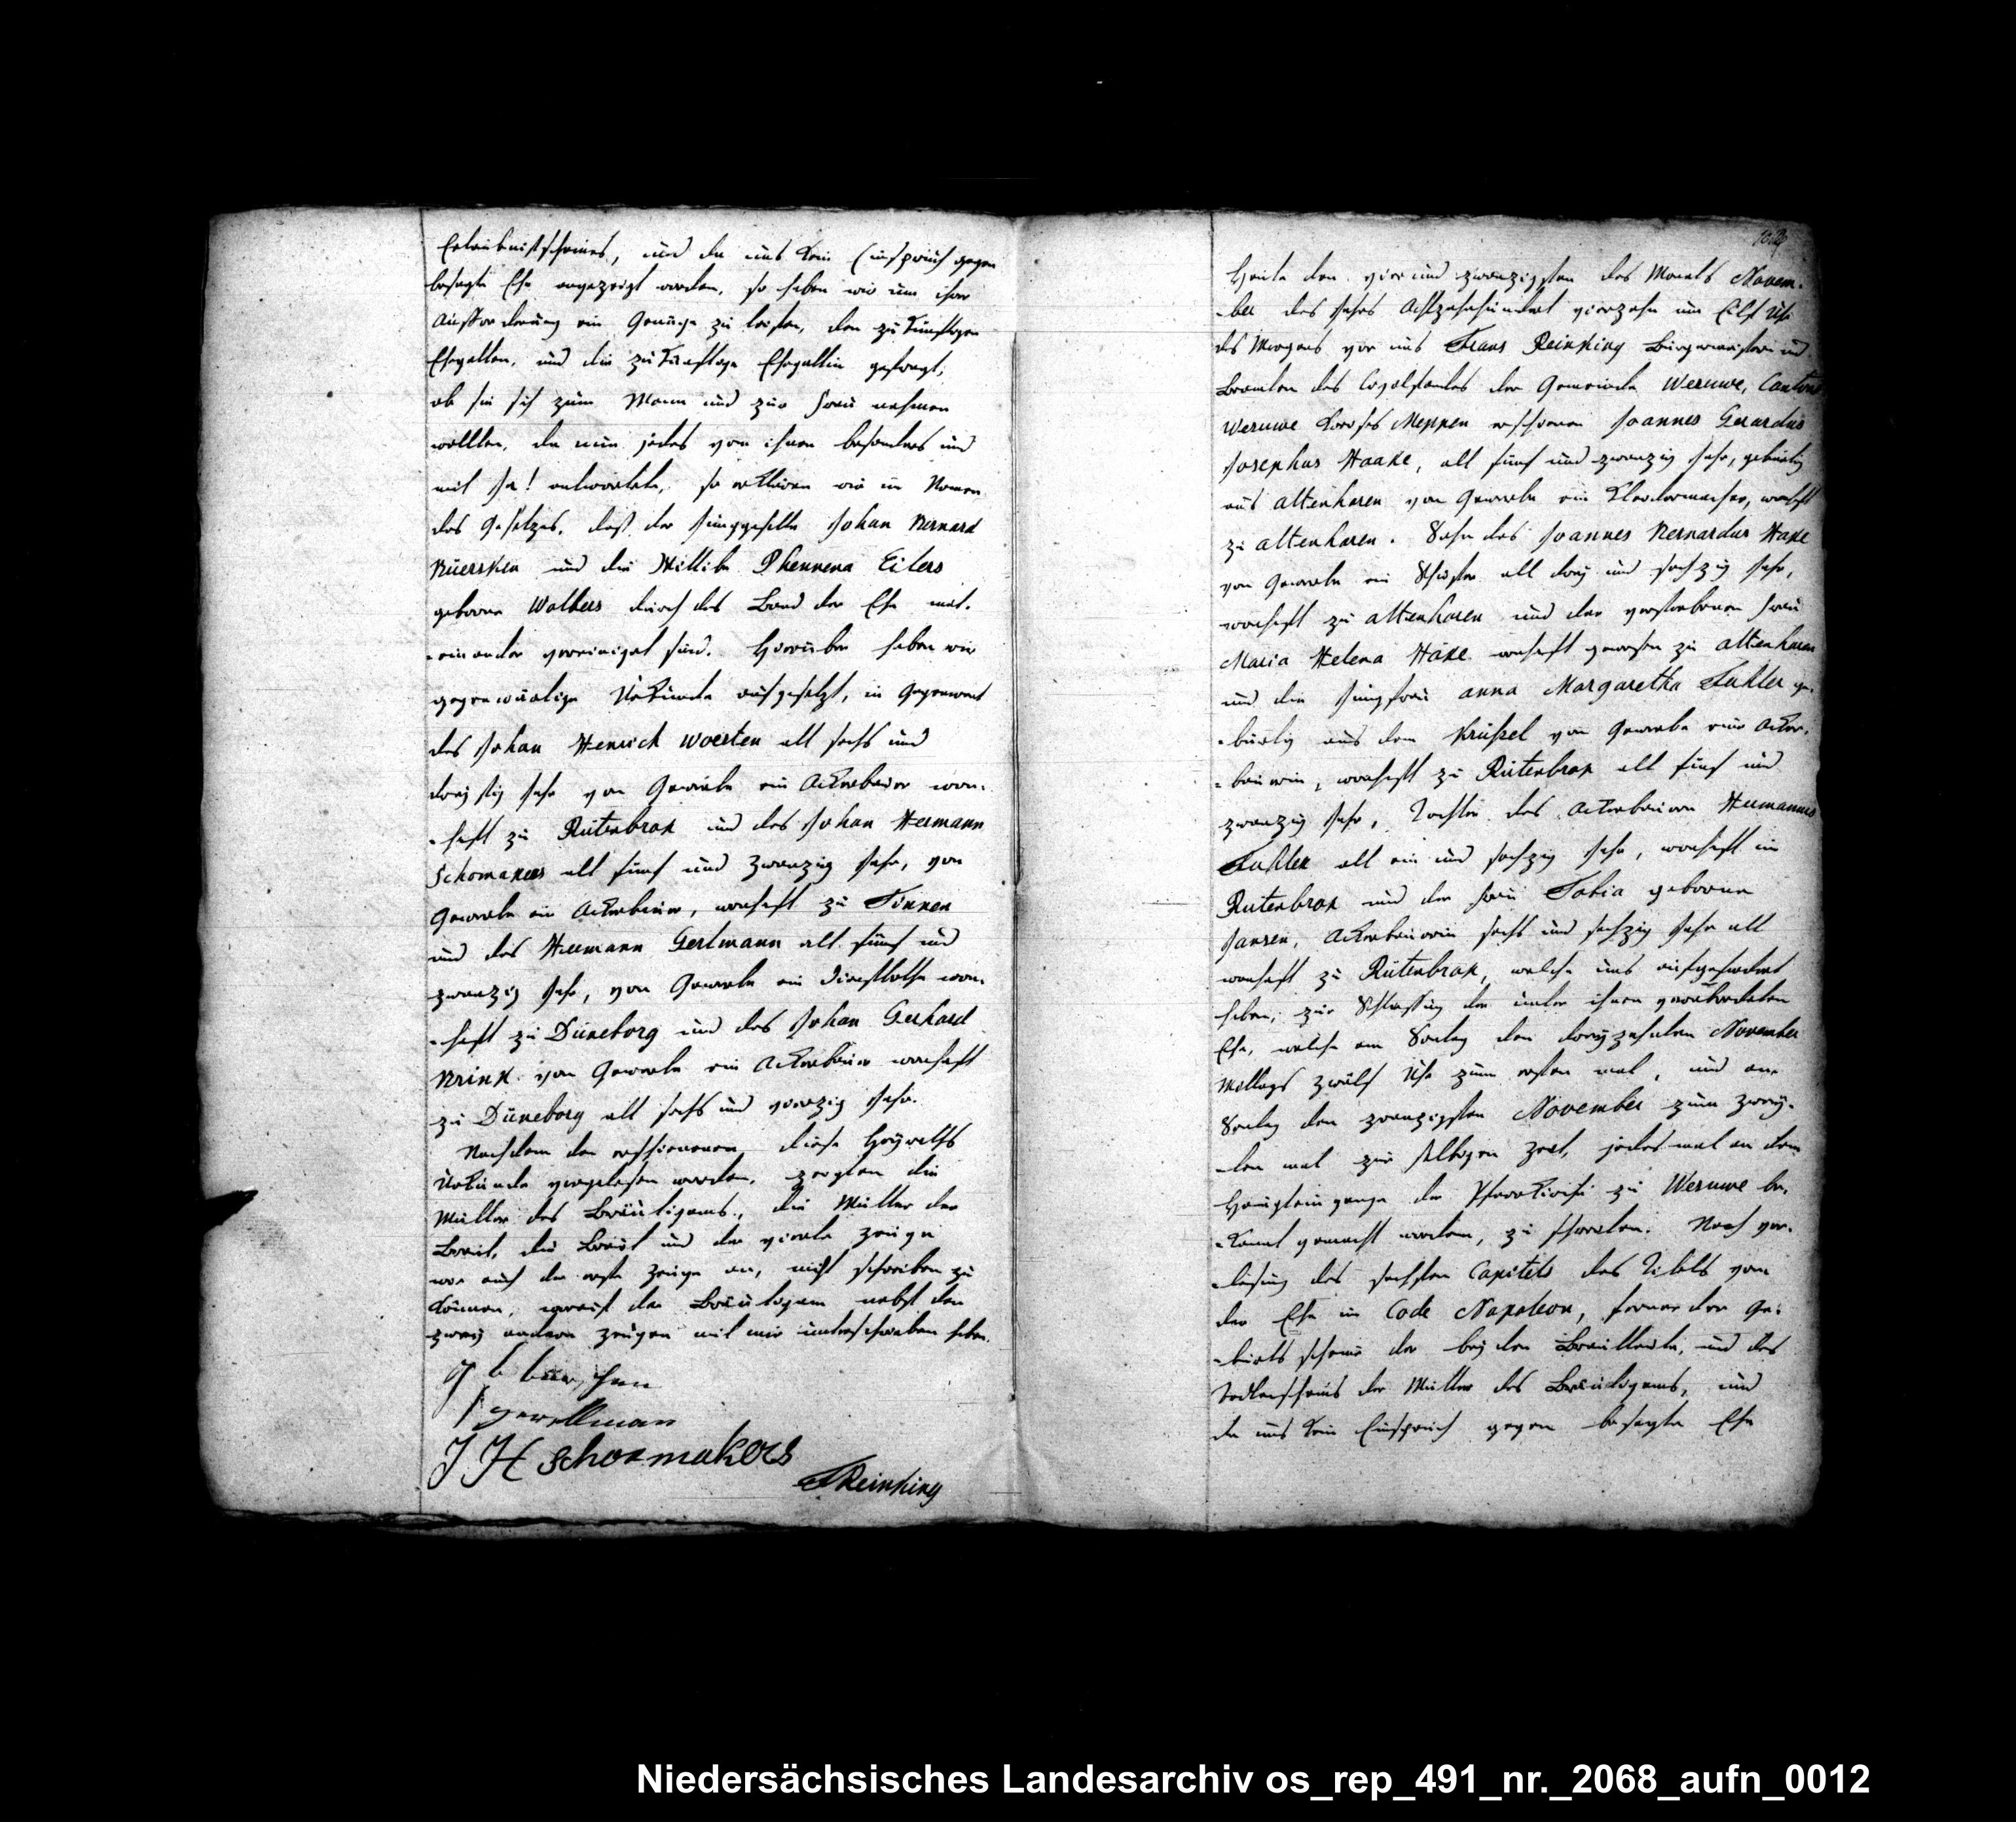 Erlaubnißscheines, und da uns kein Einspruch gegen
besagte Ehe angezeigt worden, so haben wir um ihrer
Aufforderung ein Genüge zu leisten, den zukünftigen
Ehegatten, und die zukünftige Ehegattin gefragt,
ob sie sich zum Mann und zur Frau nehmen
wollten, da nun jedes von ihnen besonders und
mit Ja! antwortete, so erklären wir im Namen
des Gesetzes, daß der Junggeselle Johan Bernard
Büersken und die Wittibe Phennena Eilers
geborne Wolbers durch das Band der Ehe mit-
-einander vereiniget sind. Hierüber haben wir
gegenwärtige Urkunde aufgesetzt, in Gegenwart
des Johan Henrich Woesten alt sechs und
dreyßig Jahr von Gewerbe ein Ackerbauer won-
-haft zu Rütenbrok und des Johan Hermann
Schomakers alt fünf und zwanzig Jahr, von
Gewerbe ein Ackerbauer, wonhaft zu Tinnen
und des Hermann Gerlmann alt fünf und
zwanzig Jahr, von Gewerbe ein Dienstbothe won-
-haft zu Düneborg und des Johan Gerhard
Brink von Gewerbe ein Ackerbauer wonhaft
zu Düneborg alt sechs und vierzig Jahr.
Nachdem den erschienenen diese Heyraths
Urkunde vorgelesen worden, zeigten die
Mutter des Bräutigams, die Mutter der
Braut, die Braut und der vierte Zeuge
wie auch der erste Zeuge an, nicht schreiben zu
können, worauf der Bräutigam nebst den
zwey andern Zeugen mit mir unterschrieben haben.
J H schormakers
F Reinking
Heute den vier und zwanzigsten des Monats Novem-
-ber des Jahrs Achtzehnhundert vierzehn um Eilf Uhr
des Morgens vor uns Frans Reinking Bürgermeister und
Beamten des Civilstandes der Gemeinde Wesuwe, Cantons
Wesuwe Kreises Meppen erschienen Joannes Gerardus
Josephus Haake, alt fünf und zwanzig Jahr, gebürtig
aus altenharen von Gewerbe ein Kleidermacher, wonhaft
zu altenharen. Sohn des Joannes Bernardus Hake
von Gewerbe ein Schuster alt drey und sechzig Jahr,
wonhaft zu altenharen und der verstorbenen Frau
Maria Helena Häke wonhaft gewesen zu altenharen
und die Jungfrau anna Margaretha Tahler ge-
-bürtig aus dem Krüßel von Gewerbe eine Acker-
-bäuerin, wonhaft zu Rütenbrok alt fünf und
zwanzig Jahr, Tochter des Ackerbauern Hermannus
Tahler alt ein und sechzig Jahr, wonhaft im
Rütenbrok und der Frau Tobia geborne
Jansen, Ackerbäuerin sechs und sechzig Jahr alt
wonhaft zu Rütenbrok, welche uns aufgefordert
haben, zur Schließung der unter ihnen verabredeten
Ehe, welche am Sontag den dreyzehnten November
Mittags zwölf Uhr zum ersten mal, und am
Sontag den zwanzigsten November zum zwey-
-ten mal zur selbigen Zeit, jedesmal an dem
Haupteingange der Pfarrkirche zu Wesuwe be-
-kannt gemacht worden, zu schreiten. Nach ver-
-lesung des sechsten Capitels des Titels von
der Ehe im Code Napoleon, ferner der Ge-
-burtsscheine der beyden Brautleute, und des
Todtenscheins der Mutter des Bräutigams, und
da uns kein Einspruch gegen besagte Ehe
Niedersächsisches Landesarchiv os_rep_491_nr._2068_aufn_0012